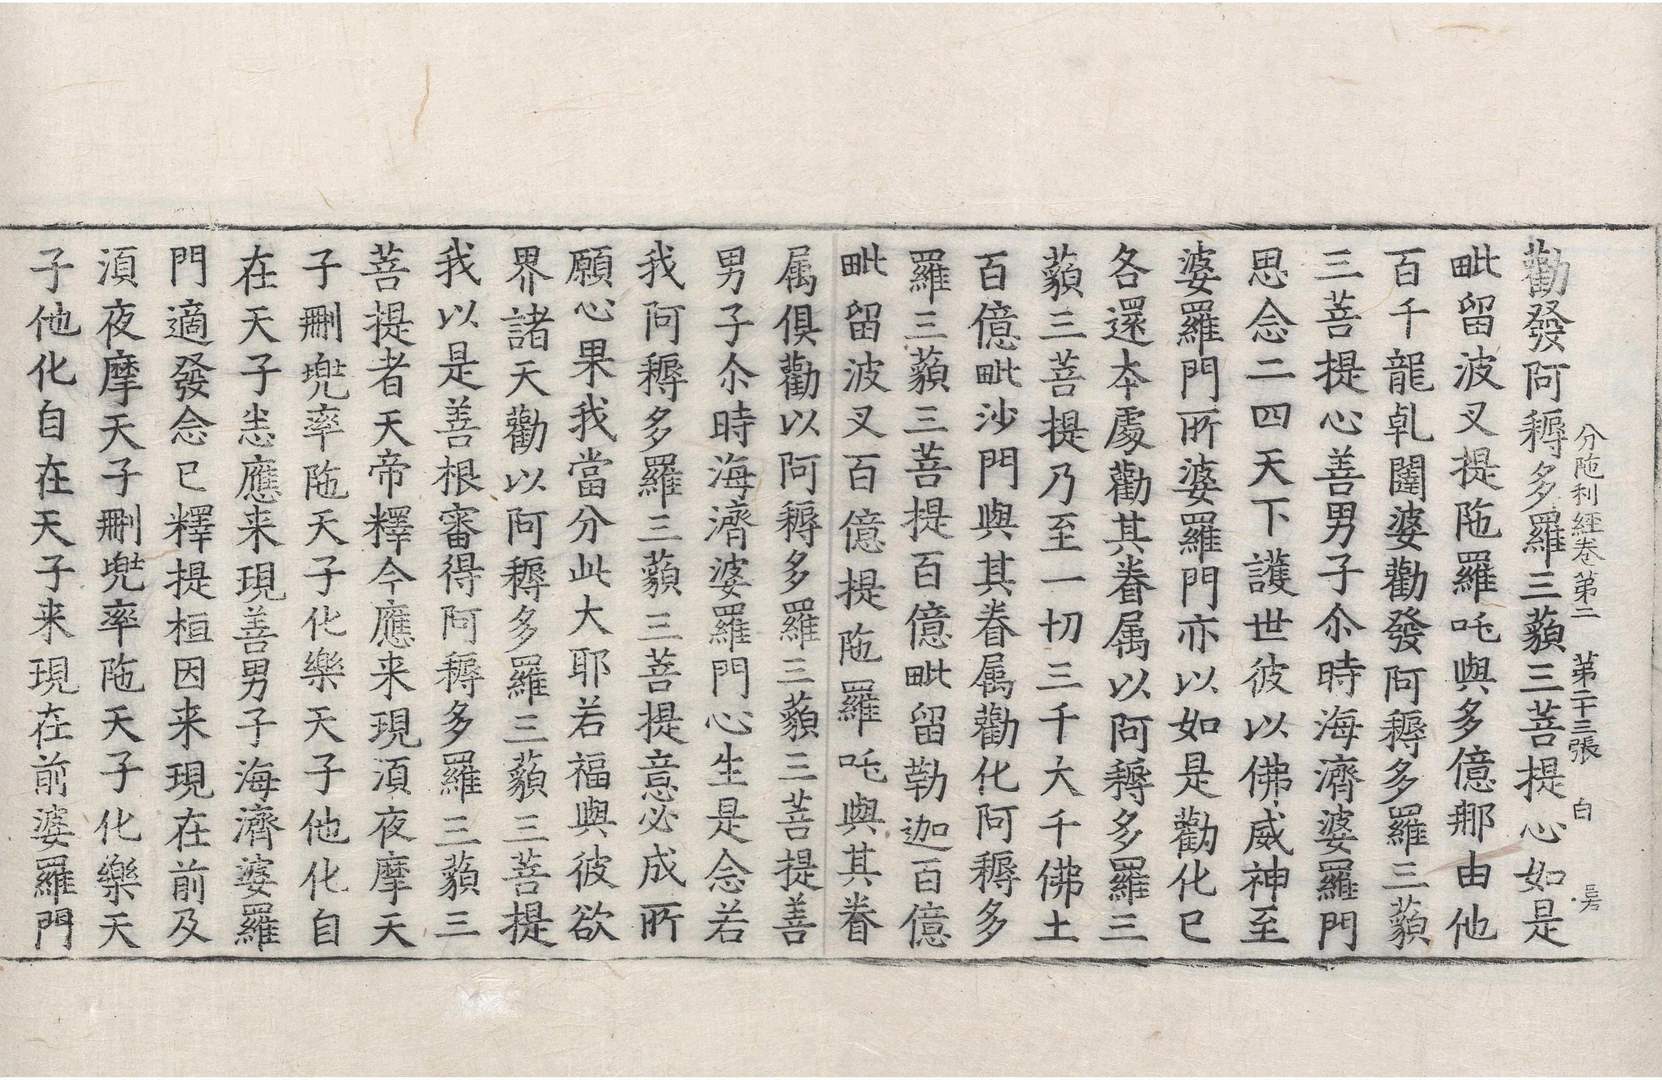 分陁利經卷第二　第二十三張　白
勸發阿耨多羅三藐三菩提心如是
毗留波叉提陁羅吒與多億那由他
百千龍乹闥婆勸發阿耨多羅三藐
三菩提心善男子尒時海濟婆羅門
思念二四天下護世彼以佛威神至
婆羅門所婆羅門亦以如是勸化已
各還本處勸其眷属以阿耨多羅三
藐三菩提乃至一切三千大千佛土
百億毗沙門與其眷属勸化阿耨多
羅三藐三菩提百億毗留勒迦百億
毗留波叉百億提陁羅吒與其眷
属俱勸以阿耨多羅三藐三菩提善
男子尒時海濟婆羅門心生是念若
我阿耨多羅三藐三菩提意必成所
願心果我當分此大耶若福與彼欲
界諸天勸以阿耨多羅三藐三菩提
我以是善根審得阿耨多羅三藐三
菩提者天帝釋今應来現湏夜摩天
子刪兠率陁天子化樂天子他化自
在天子恚應来現善男子海濟婆羅
門適發念已釋提桓因来現在前及
湏夜摩天子刪兠率陁天子化樂天
子他化自在天子来現在前婆羅門